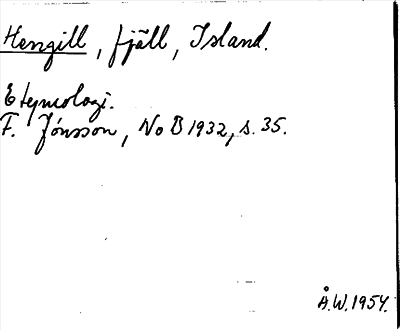 Hengill, fjäll, Island.
Etymologi.
F. Jónsson, NoB 1932, s. 35.
Å.W. 1954.